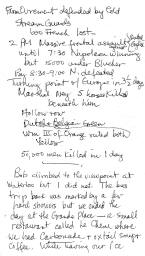 Firm Ourement defended by Cold
Stream Guards
600 French lost
2 PM Massive frontal assault
until 7:30 Napoleon winning
but 15000 under Blucher
8:30 - 9:00 N. defeated
Turning point of Europe in 3½ days
Marshal Ney 5 horses killed
beneath him
Hollow row
Dutch Belgian Green
Wm III of Orange ruled both
Yellow
50,000 men killed in 1 day
Bob climbed to the viewpoint at
Waterloo but I did not. The bus
trip back was marked by a for
hard showers but we ended the
day at the Grande Place — a small
restaurant called le Chene where
we had Carbonade & oxtail soup &
Coffee. While having our ice